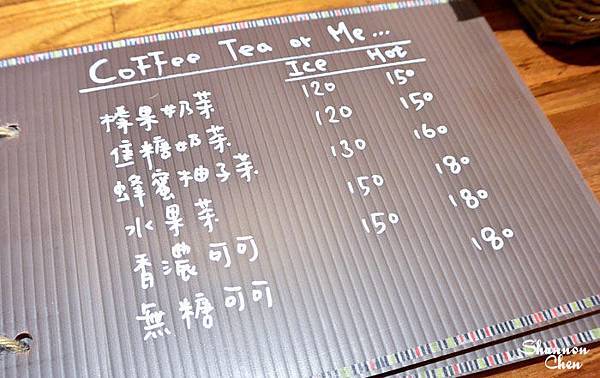 Coffee Tea or Me...
Ice Hot
榛果奶茶 120 150
焦糖奶茶 120 150
蜂蜜柚子茶 130 160
水果茶 150 180
香濃可可 150 180
無糖可可 180
Shannon
Chen